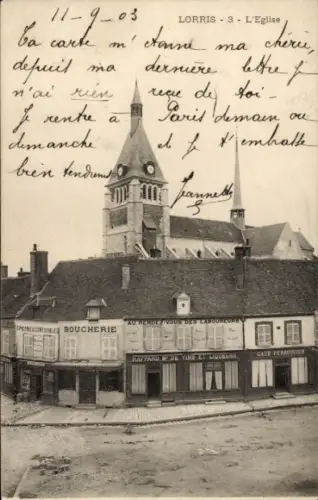 11-9-03
LORRIS - 3 - L'Eglise
Ta carte m'étonne ma chérie,
depuis ma dernière lettre je
n'ai rien reçu de toi -
Je rentre à Paris demain ou
dimanche et je t'embrasse
bien tendrement
Jeanne
BOUCHERIE
AU RENDEZ-VOUS DES LABOUREURS
RAFFARD MD DE VINS ET LIQUEURS
CAFÉ